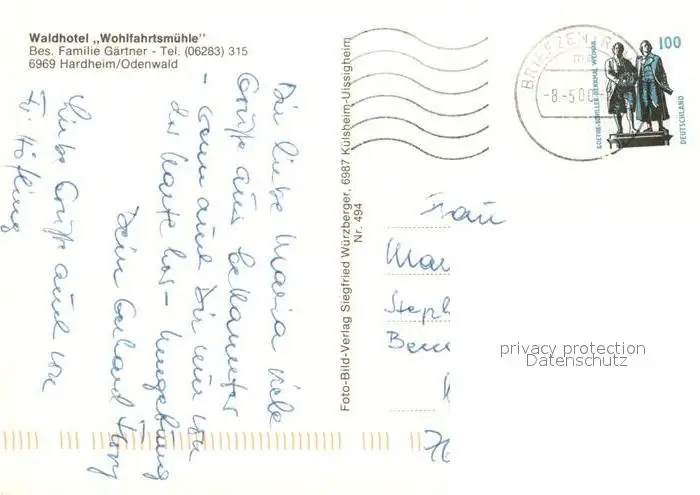 Waldhotel „Wohlfahrtsmühle"
Bes. Familie Gärtner - Tel. (06283) 315
6969 Hardheim/Odenwald
Dir liebe Maria viele
Grüße aus bekannter
- wenn auch Dir nur von
der Karte her - Umgebung
Dein
Liebe Grüße auch von
Fr. Höfling
Foto-Bild-Verlag Siegfried Würzberger, 6987 Külsheim-Uissigheim
Nr. 494
BRIEFZENTR
-8.-5.00
GOETHE-SCHILLER-DENKMAL WEIMAR
100
DEUTSCHLAND
Frau
Mar
Steph
privacy protection
Datenschutz